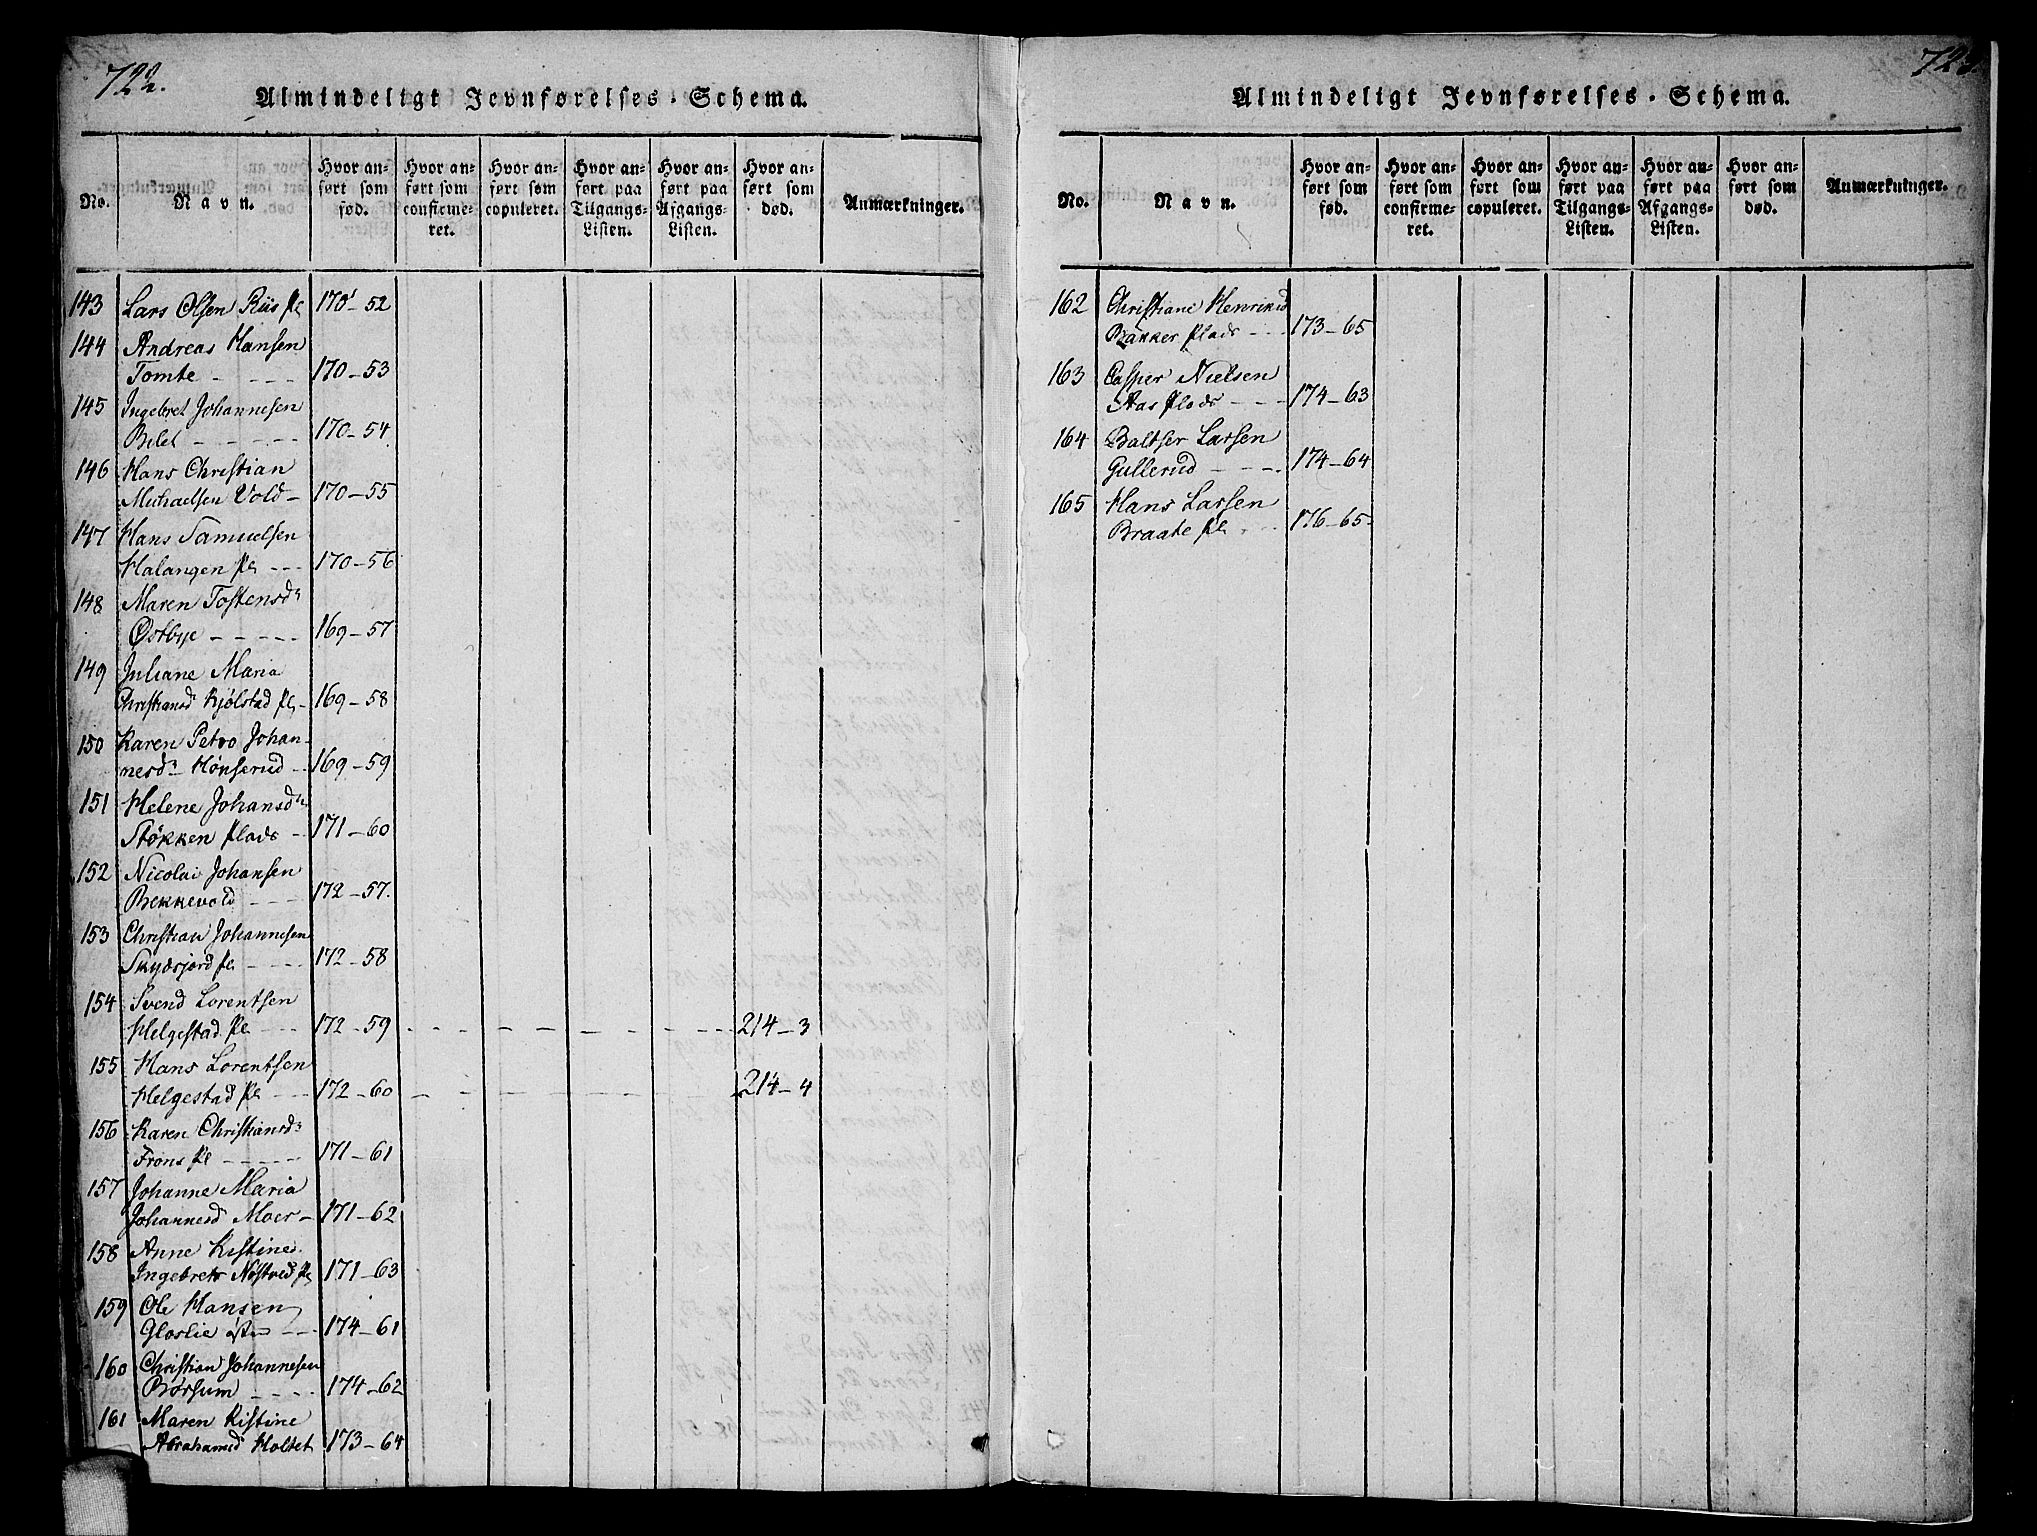 722.
Almindeligt Jevnførelses-Schema.
No.
Navn.
Hvor an-
ført som
fød.
Hvor an-
ført som
confirme-
ret.
Hvor an-
ført som
copuleret.
Hvor an-
ført paa
Tilgangs-
Listen.
Hvor an-
ført paa
Afgangs-
Listen.
Hvor an-
ført som
død.
Anmærkninger.
143 Lars Olsen Riis Pl 170-52
144 Andreas Hansen
Tomte - - - - 170-53
145 Ingebret Johannesen
Bilet - - - - - 170-54
146 Hans Christian
Michaelsen Vold - 170-55
147 Hans Samuelsen
Halangen Pl - - - 170-56
148 Maren Tostensdr
Østbye - - - - - 169-57
149 Juliane Maria
Christiansdr Kjølstad Pl - 169-58
150 Karen Petro Johan-
nesdr Hønserud - 169-59
151 Helene Johansdr
Støkken Plads - 171-60
152 Nicolai Johansen
Bekkevold - - - 172-57.
153 Christian Johannesen
Skydsjord Pl - - - 172-58
154 Svend Lorentsen
Helgestad Pl - - - 172-59 - - - - - - - - - 214-3
155 Hans Lorentsen
Helgestad Pl - - - 172-60 - - - - - - - - - 214-4
156 Karen Christiansdr
Frons Pl - - - - - 171-61
157 Johanne Maria
Johannesd Moer - 171-62
158 Anne Kistine
Ingebrets Nøstved Pl 171-63
159 Ole Hansen
Gloslie østre - - - 174-61
160 Christian Johannesen
Børsum - - - - 174-62
161 Maren Kistine
Abrahamsd Holtet 173-64
723.
Almindeligt Jevnførelses-Schema.
No.
Navn.
Hvor an-
ført som
fød.
Hvor an-
ført som
confirme-
ret.
Hvor an-
ført som
copuleret.
Hvor an-
ført paa
Tilgangs-
Listen.
Hvor an-
ført paa
Afgangs-
Listen.
Hvor an-
ført som
død.
Anmærkninger.
162 Christiane Henriksd
Bakker Plads - - - 173-65
163 Casper Nielsen
Aas Plads - - - 174-63
164 Baltser Larsen
Gullerud - - - - 174-64
165 Hans Larsen
Braate Pl - - - 176-65-